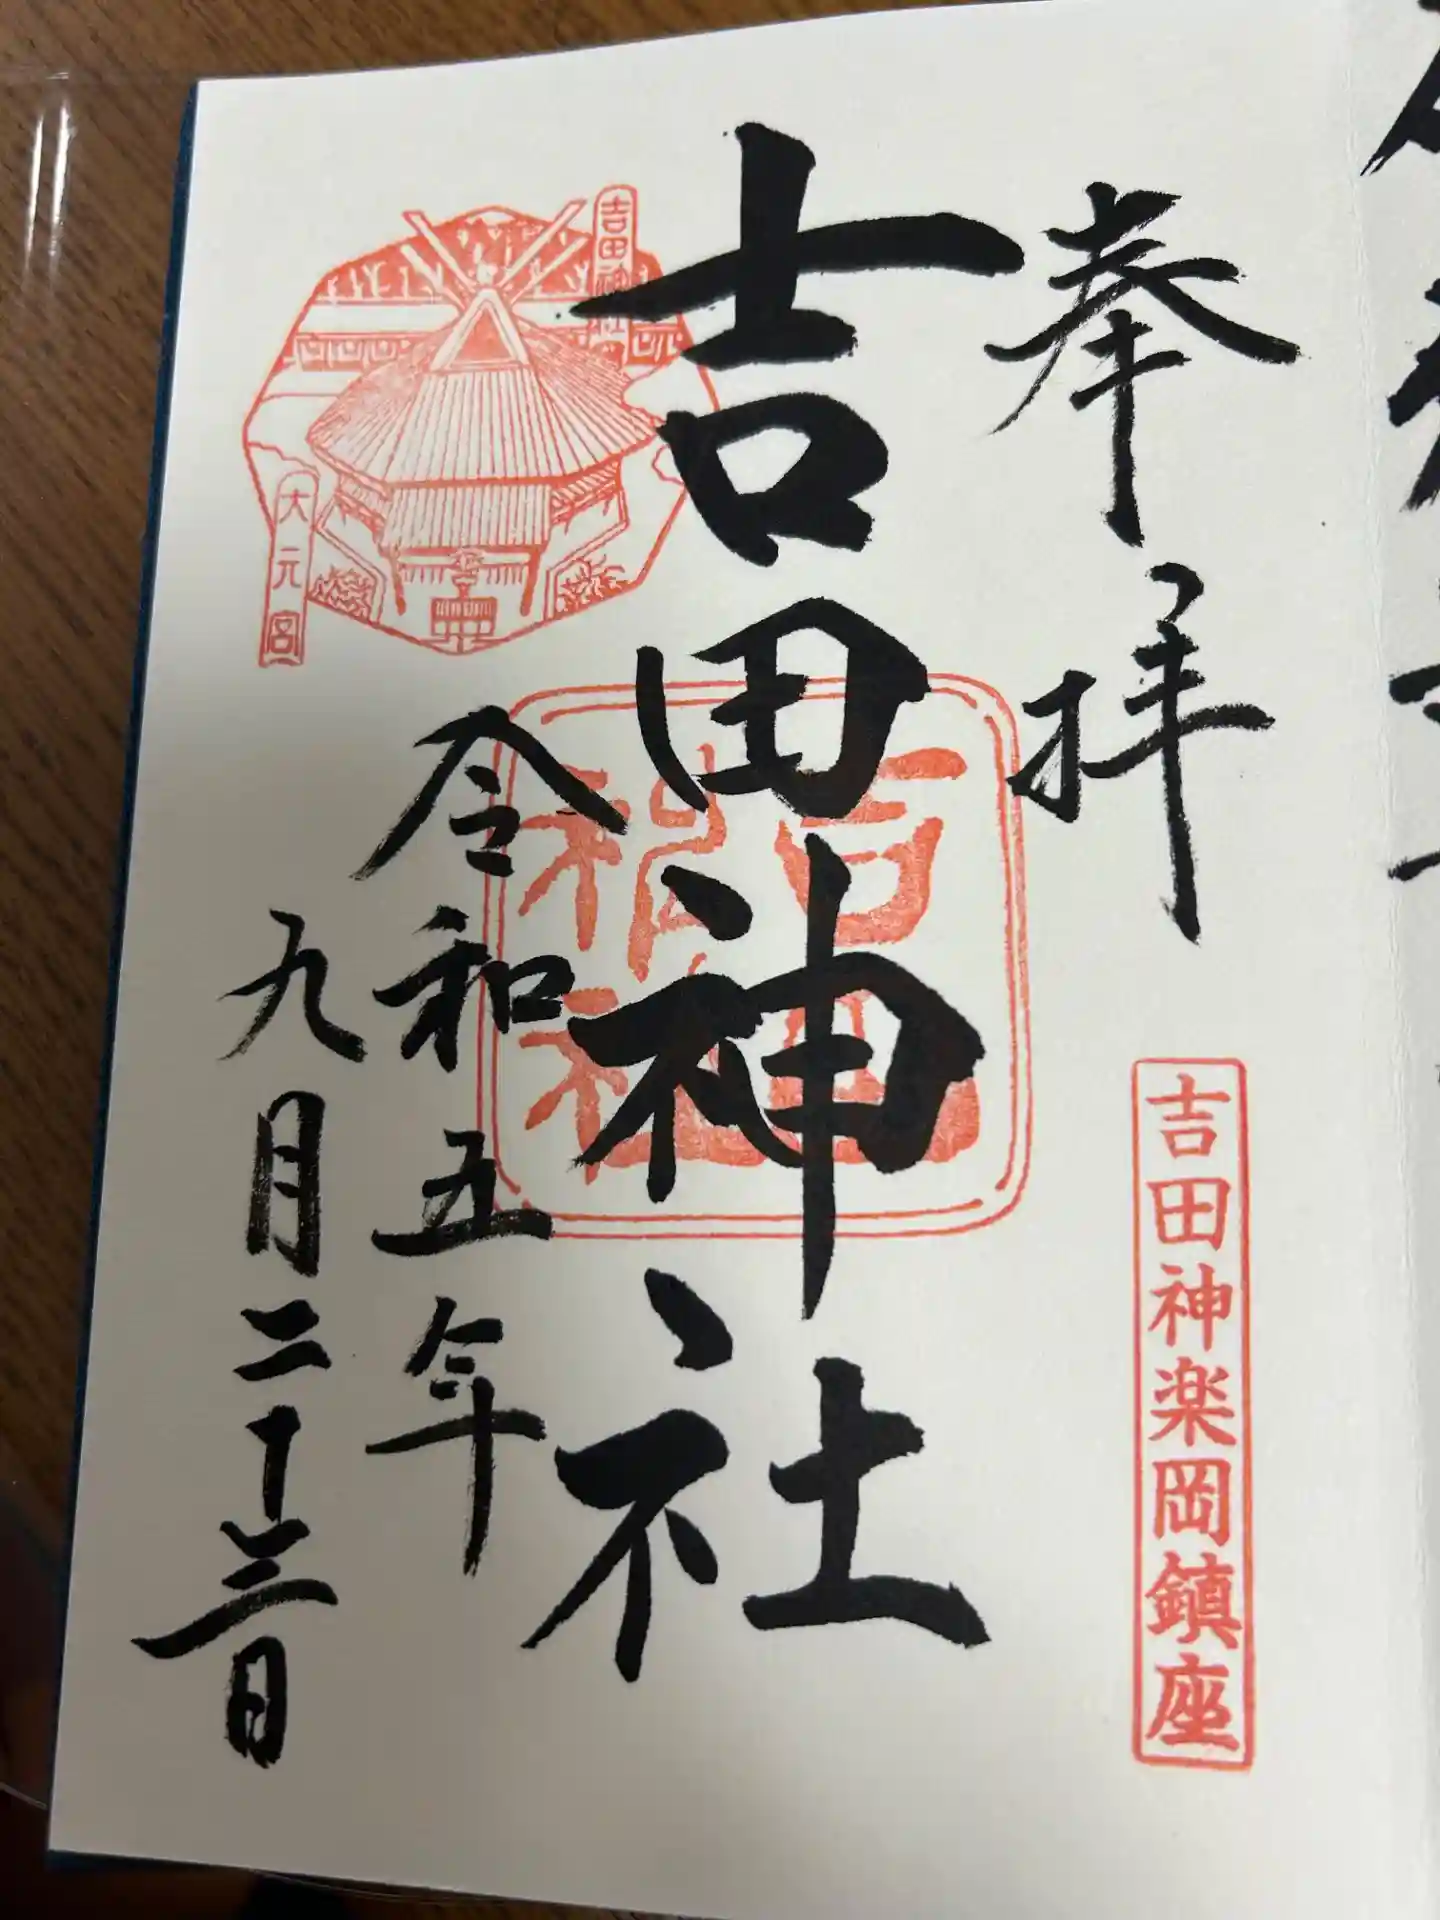 奉拝
吉田神楽岡鎮座
吉田神社
吉田神社
令和五年
九月二十三日
吉田神社
大元宮